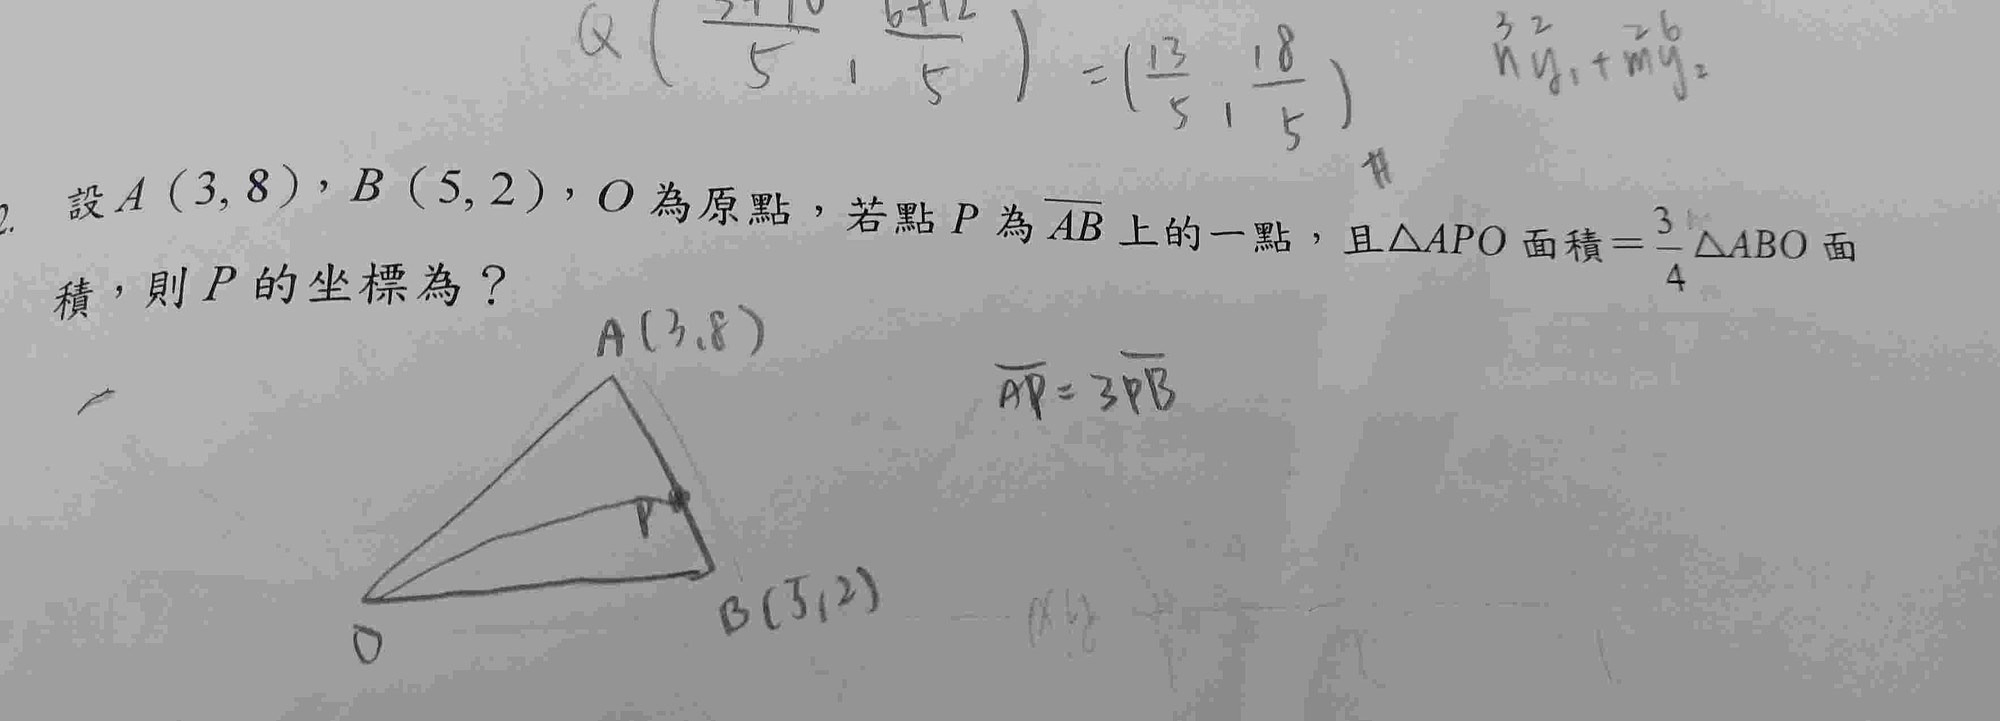 Q ( 3+10/5 , 6+12/5 ) = ( 13/5 , 18/5 ) #
3 2 2 6
ny₁ + my₂
2. 設 A ( 3, 8 ),B ( 5, 2 ),O 為原點,若點 P 為 A̅B̅ 上的一點,且△APO 面積 = 3/4 △ABO 面
積,則 P 的坐標為?
A(3,8)
A̅P̅ = 3P̅B̅
P
B(5,2)
O